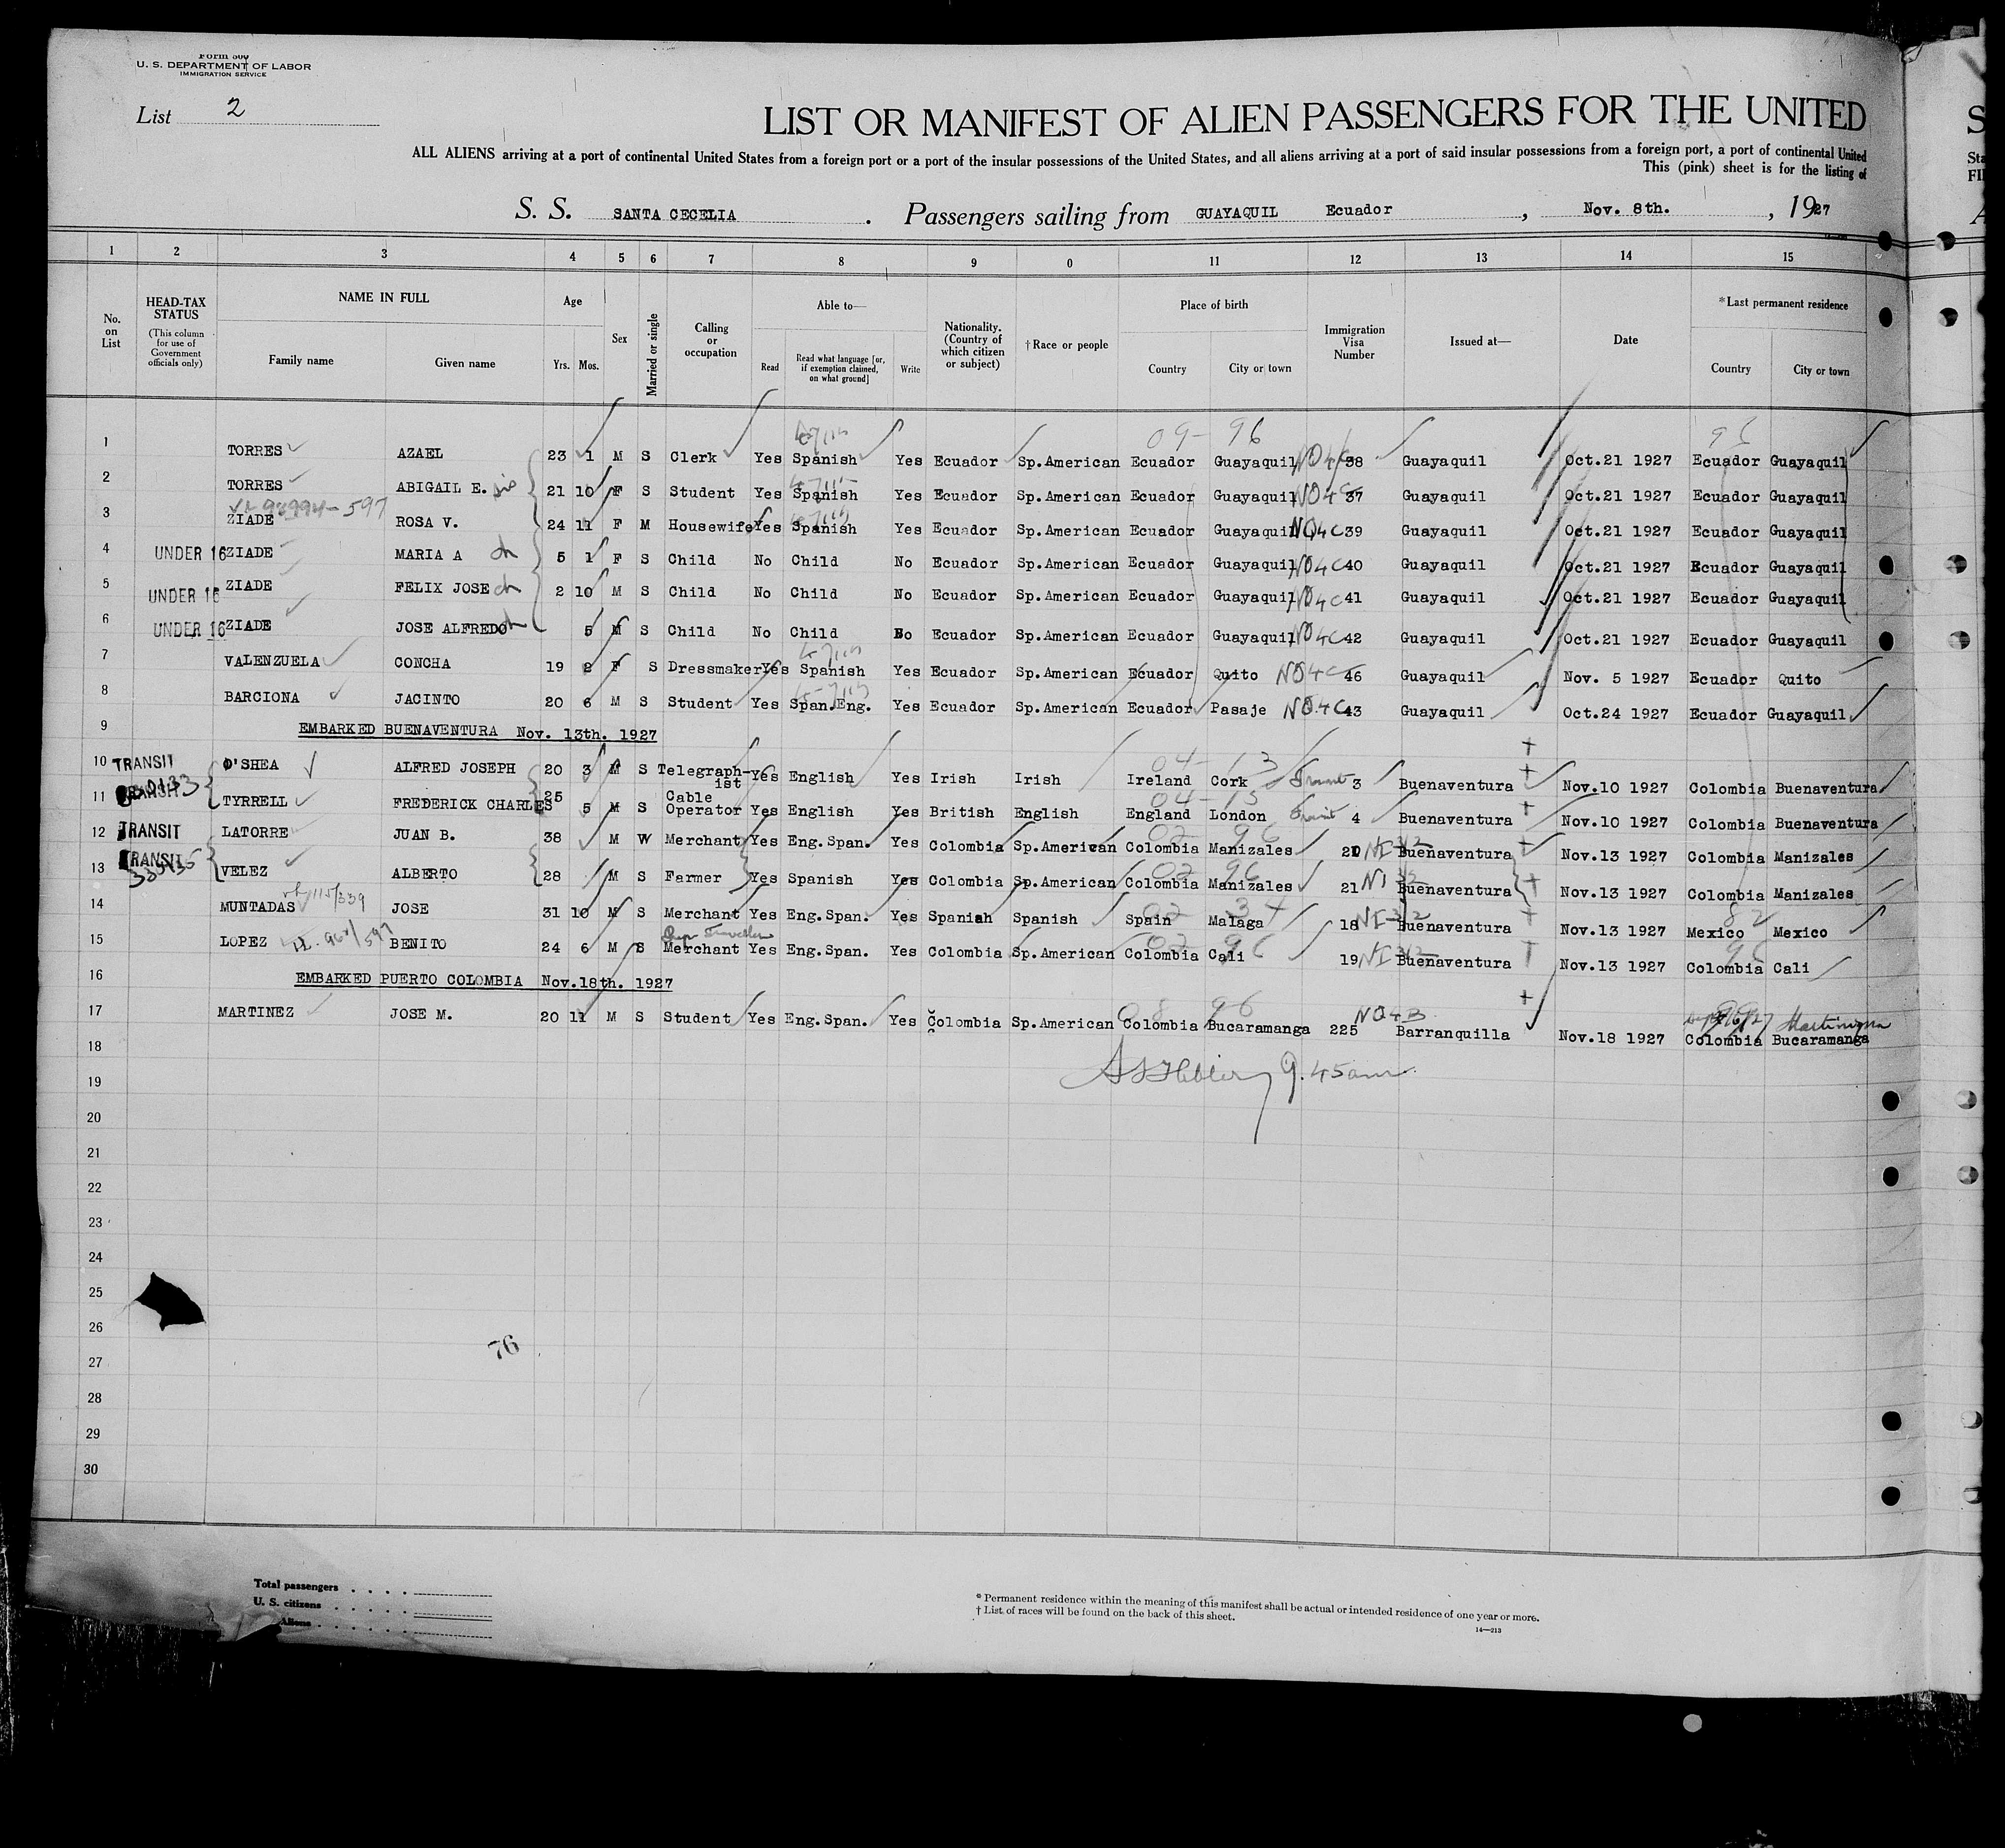 Form 500
U. S. DEPARTMENT OF LABOR
IMMIGRATION SERVICE
List 2
LIST OR MANIFEST OF ALIEN PASSENGERS FOR THE UNITED
ALL ALIENS arriving at a port of continental United States from a foreign port or a port of the insular possessions of the United States, and all aliens arriving at a port of said insular possessions from a foreign port, a port of continental United
This (pink) sheet is for the listing of
S. S. SANTA CECELIA . Passengers sailing from GUAYAQUIL Ecuador , Nov. 8th. , 1927
1 2 3 4 5 6 7 8 9 0 11 12 13 14 15
No. on List
HEAD-TAX STATUS (This column for use of Government officials only)
NAME IN FULL
Family name Given name
Age
Yrs. Mos.
Sex
Married or single
Calling or occupation
Able to—
Read Read what language [or, if exemption claimed, on what ground] Write
Nationality. (Country of which citizen or subject)
†Race or people
Place of birth
Country City or town
Immigration Visa Number
Issued at—
Date
*Last permanent residence
Country City or town
09- 96 96
1 TORRES AZAEL 23 1 M S Clerk Yes Spanish Yes Ecuador Sp.American Ecuador Guayaquil NO4C 38 Guayaquil Oct.21 1927 Ecuador Guayaquil
2 TORRES ABIGAIL E. sis 21 10 F S Student Yes Spanish Yes Ecuador Sp.American Ecuador Guayaquil NO4C 37 Guayaquil Oct.21 1927 Ecuador Guayaquil
3 ZIADE ROSA V. 24 11 F M Housewife Yes Spanish Yes Ecuador Sp.American Ecuador Guayaquil NO4C 39 Guayaquil Oct.21 1927 Ecuador Guayaquil
4 UNDER 16 ZIADE MARIA A ch 5 1 F S Child No Child No Ecuador Sp.American Ecuador Guayaquil NO4C 40 Guayaquil Oct.21 1927 Ecuador Guayaquil
5 UNDER 16 ZIADE FELIX JOSE ch 2 10 M S Child No Child No Ecuador Sp.American Ecuador Guayaquil NO4C 41 Guayaquil Oct.21 1927 Ecuador Guayaquil
6 UNDER 16 ZIADE JOSE ALFREDO ch 5 M S Child No Child No Ecuador Sp.American Ecuador Guayaquil NO4C 42 Guayaquil Oct.21 1927 Ecuador Guayaquil
7 VALENZUELA CONCHA 19 8 F S Dressmaker Yes Spanish Yes Ecuador Sp.American Ecuador Quito NO4C 46 Guayaquil Nov. 5 1927 Ecuador Quito
8 BARCIONA JACINTO 20 6 M S Student Yes Span.Eng. Yes Ecuador Sp.American Ecuador Pasaje NO4C 43 Guayaquil Oct.24 1927 Ecuador Guayaquil
9 EMBARKED BUENAVENTURA Nov. 13th. 1927
10 TRANSIT O'SHEA ALFRED JOSEPH 20 3 M S Telegraph-ist Yes English Yes Irish Irish Ireland Cork Transit 3 Buenaventura Nov.10 1927 Colombia Buenaventura
11 TRANSIT TYRRELL FREDERICK CHARLES 25 5 M S Cable Operator Yes English Yes British English England London Transit 4 Buenaventura Nov.10 1927 Colombia Buenaventura
12 TRANSIT LATORRE JUAN B. 38 M W Merchant Yes Eng.Span. Yes Colombia Sp.American Colombia Manizales 20 NI 3/2 Buenaventura Nov.13 1927 Colombia Manizales
13 TRANSIT VELEZ ALBERTO 28 M S Farmer Yes Spanish Yes Colombia Sp.American Colombia Manizales 21 NI 3/2 Buenaventura Nov.13 1927 Colombia Manizales
14 MUNTADAS JOSE 31 10 M S Merchant Yes Eng.Span. Yes Spanish Spanish Spain Malaga 18 NI-3/2 Buenaventura Nov.13 1927 Mexico Mexico
15 LOPEZ BENITO 24 6 M S Merchant Yes Eng.Span. Yes Colombia Sp.American Colombia Cali 19 NI 3/2 Buenaventura Nov.13 1927 Colombia Cali
16 EMBARKED PUERTO COLOMBIA Nov.18th. 1927
17 MARTINEZ JOSE M. 20 11 M S Student Yes Eng.Span. Yes Colombia Sp.American Colombia Bucaramanga 225 NO4B Barranquilla Nov.18 1927 Colombia Bucaramanga
18
19 9.45am
20
21
22
23
24
25
26
76
27
28
29
30
Total passengers
U. S. citizens
Aliens
* Permanent residence within the meaning of this manifest shall be actual or intended residence of one year or more.
† List of races will be found on the back of this sheet.
14—213